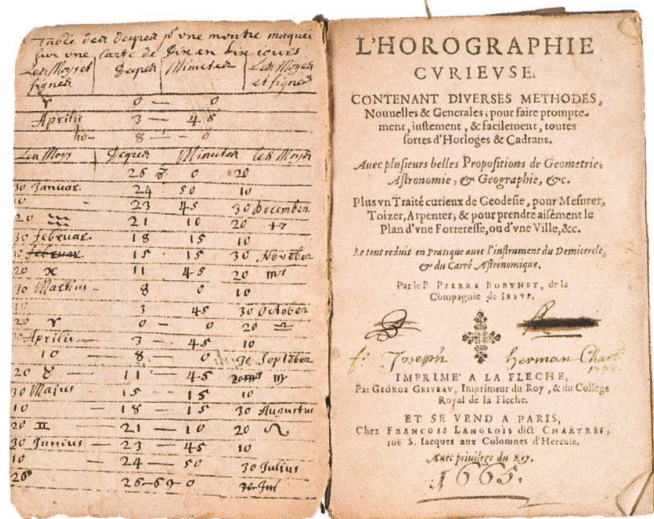 Table des degrez pr vne montre
sur vne Carte de dix en dix iours
Les Moys et Degrez Minutes Les Moys
signes et signes
♈ 0 — 0
Aprilis 3 — 45
8 — 0
Les Moys Degrez Minutes Les Moys
26 0 20
30 Januar. 24 50 10
10 23 45 30 December
20 ♒ 21 10 20
30 februar. 18 15 10
15 15 30
20 ♓ 11 45 20 ♏
30 Martius 8 0 10
10 3 45 30 October
20 ♈ 0 — 0 20 ♎
30 Aprilis 3 — 45 10
10 8 — 0
20 ♉ 11 — 45 ♍
30 Maius 15 15 10
10 18 — 15 30 Augustus
20 ♊ 21 — 10 20 ♌
30 Junius 23 — 45 10
10 24 — 50 30 Julius
L'HOROGRAPHIE
CVRIEVSE.
CONTENANT DIVERSES METHODES,
Nouuelles & Generales; pour faire prompte-
ment, iustement, & facilement, toutes
sortes d'Horloges & Cadrans.
Auec plusieurs belles Propositions de Geometrie,
Astronomie, & Geographie, &c.
Plus vn Traité curieux de Geodesie, pour Mesurer,
Toizer, Arpenter, & pour prendre aisément le
Plan d'vne Forteresse, ou d'vne Ville, &c.
Le tout reduit en Pratique auec l'instrument du Demicercle,
& du Carré Astronomique.
Par le P. PIERRE BOBYNET, de la
Compagnie de IESVS.
fr Joseph Herman
IMPRIME' A LA FLECHE,
Par GEORGE GRIVEAV, Imprimeur du Roy, & du College
Royal de la Fleche.
ET SE VEND A PARIS,
Chez FRANCOIS LANGLOIS dict CHARTRES,
ruë S. Iacques aux Colomnes d'Hercule.
Auec priuilege du Roy.
1665.